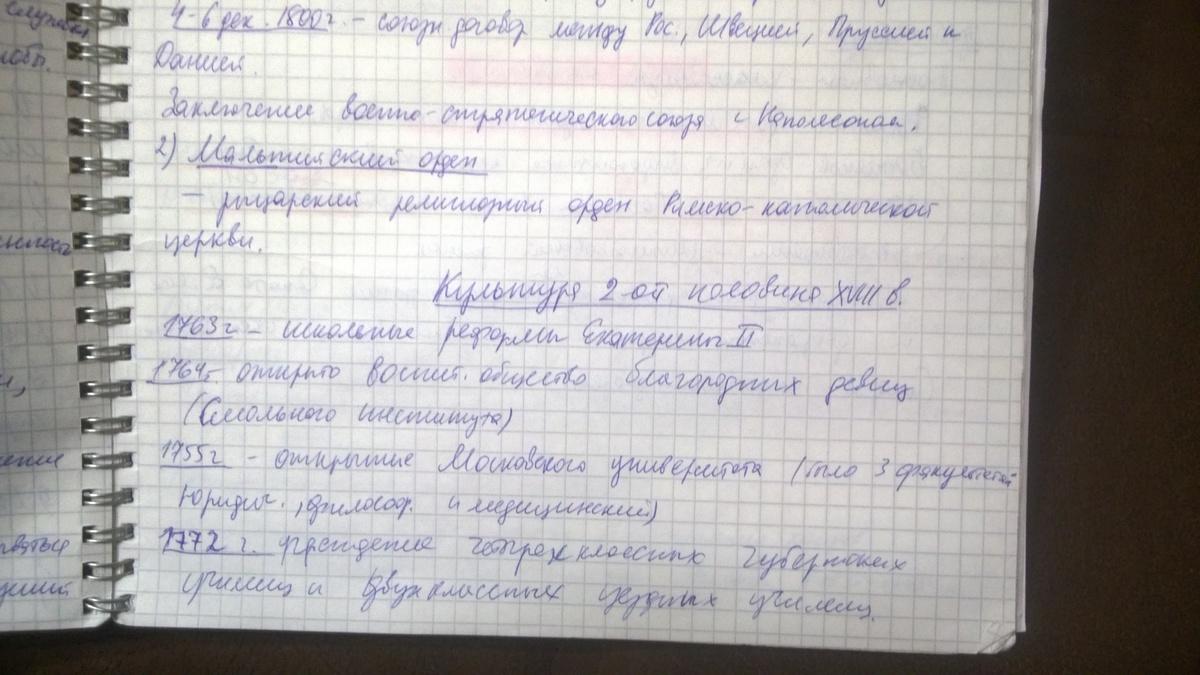 случаях
4-6 дек. 1800г. - союзн договор между Рос., Швецией, Пруссией и
Данией.
Заключение военно-стратегического союза с Наполеоном.
2) Мальтийский орден
- рыцарский религиозный орден Римско-католической
церкви.
Культура 2-ой половины XVIII в.
1763г - школьные реформы Екатерины II
1764г. открыто воспит. общество благородных девиц
(Смольного института)
1755г - открытие Московского университета (было 3 факультета
Юридич., философ. и медицинский)
1772 г. учреждение четырехклассных губернских
училищ и двухклассных уездных училищ.